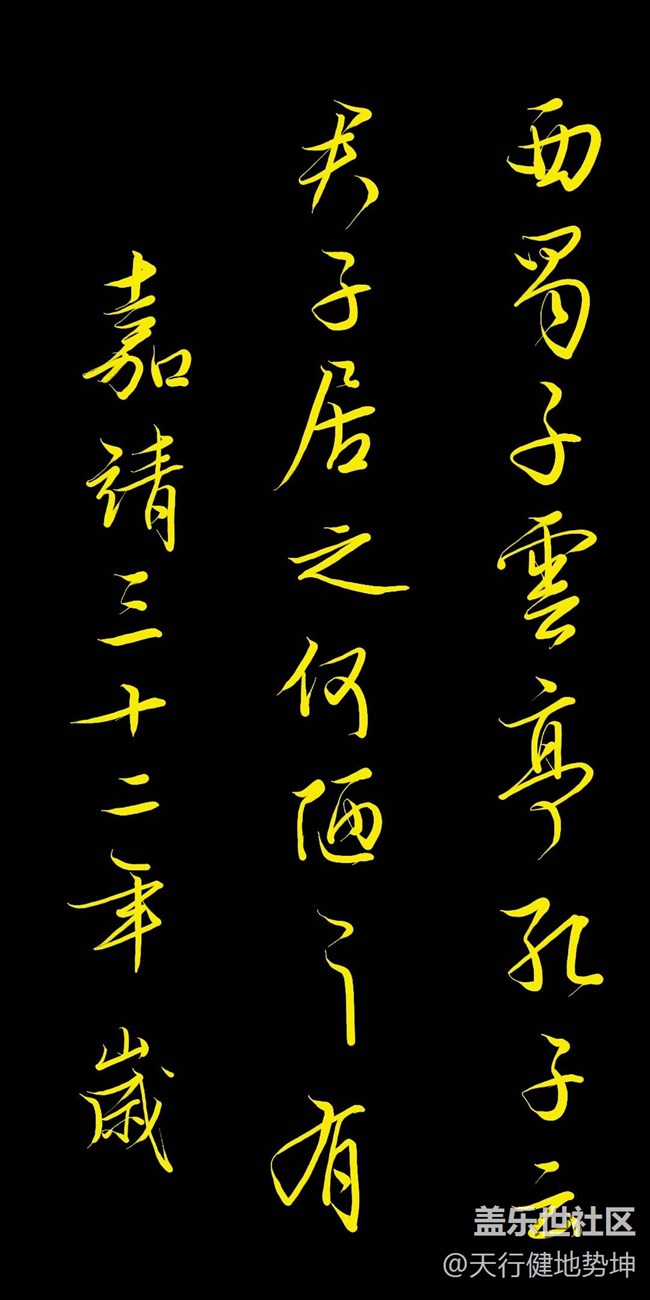 西蜀子雲亭孔子云
君子居之何陋之有
嘉靖三十二年歲
盖乐世社区
@天行健地势坤